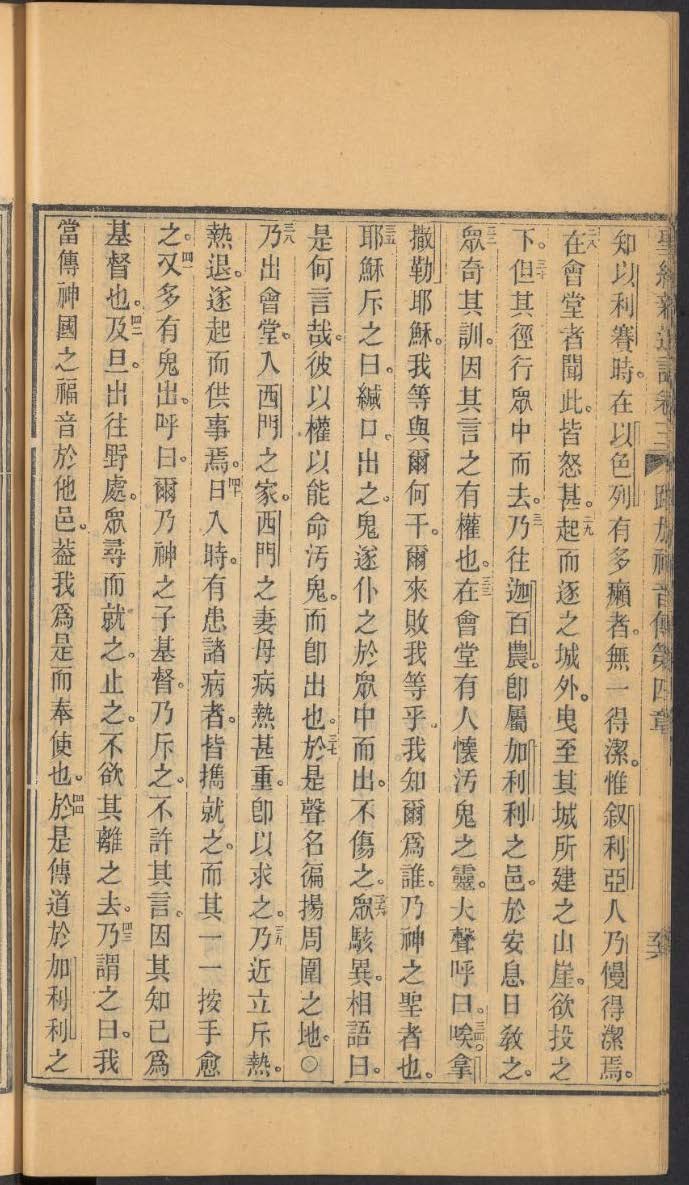 聖經新遺詔卷三 路加福音傳第四章
知以利賽時。在以色列有多癩者。無一得潔。惟叙利亞人乃慢得潔焉。
二八在會堂者聞此。皆怒甚。二九起而逐之城外。曳至其城所建之山崖。欲投之
下。三十但其徑行眾中而去。三一乃往迦百農。卽屬加利利之邑。於安息日敎之。
三二眾奇其訓。因其言之有權也。三三在會堂有人懷汚鬼之靈。大聲呼曰。三四唉。拿
撒勒耶穌。我等與爾何干。爾來敗我等乎。我知爾爲誰。乃神之聖者也。
三五耶穌斥之曰。緘口。出之。鬼遂仆之於眾中而出。不傷之。三六眾駭異。相語曰。
是何言哉。彼以權以能命汚鬼。而卽出也。三七於是聲名徧揚周圍之地。〇
三八乃出會堂。入西門之家。西門之妻母病熱甚重。卽以求之。三九乃近立斥熱。
熱退。遂起而供事焉。四十日入時。有患諸病者。皆攜就之。而其一一按手愈
之。四一又多有鬼出。呼曰。爾乃神之子基督。乃斥之。不許其言。因其知己爲
基督也。四二及旦。出往野處。眾尋而就之。止之。不欲其離之去。四三乃謂之曰。我
當傳神國之福音於他邑。葢我爲是而奉使也。四四於是傳道於加利利之